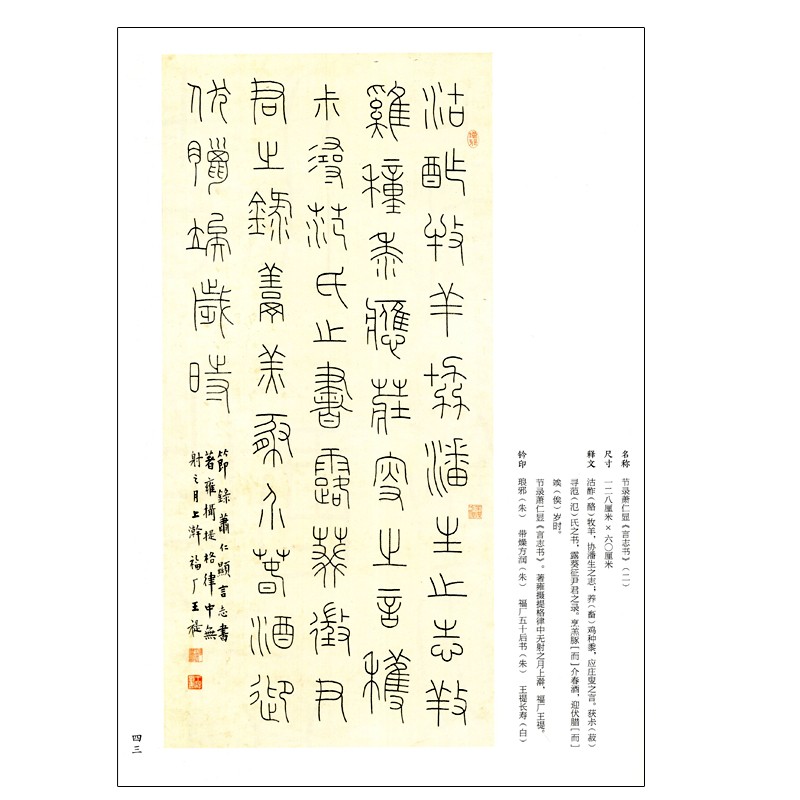 名称 节录萧仁显《言志书》(二)
尺寸 一二八厘米×六〇厘米
释文 沽酢(酪)牧羊,协潘生之志;养(畜)鸡种黍,应庄叟之言。获尗(菽)
寻范(氾)氏之书,露葵征尹君之录。烹羔豚[而]介春酒,迎伏腊[而]
竢(俟)岁时。
节录萧仁显《言志书》。著雍摄提格律中无射之月上澣,福厂王禔。
钤印 琅邪(朱) 带燥方润(朱) 福厂五十后书(朱) 王禔长寿(白)
沽酢牧羊協潘生之志養
雞種黍應莊叟之言穫
尗尋范氏之書露葵徵尹
君之錄烹羔豚介春酒迎
伏臘竢歲時
節錄蕭仁顯言志書
著雍攝提格律中無
射之月上澣福厂王禔
四三